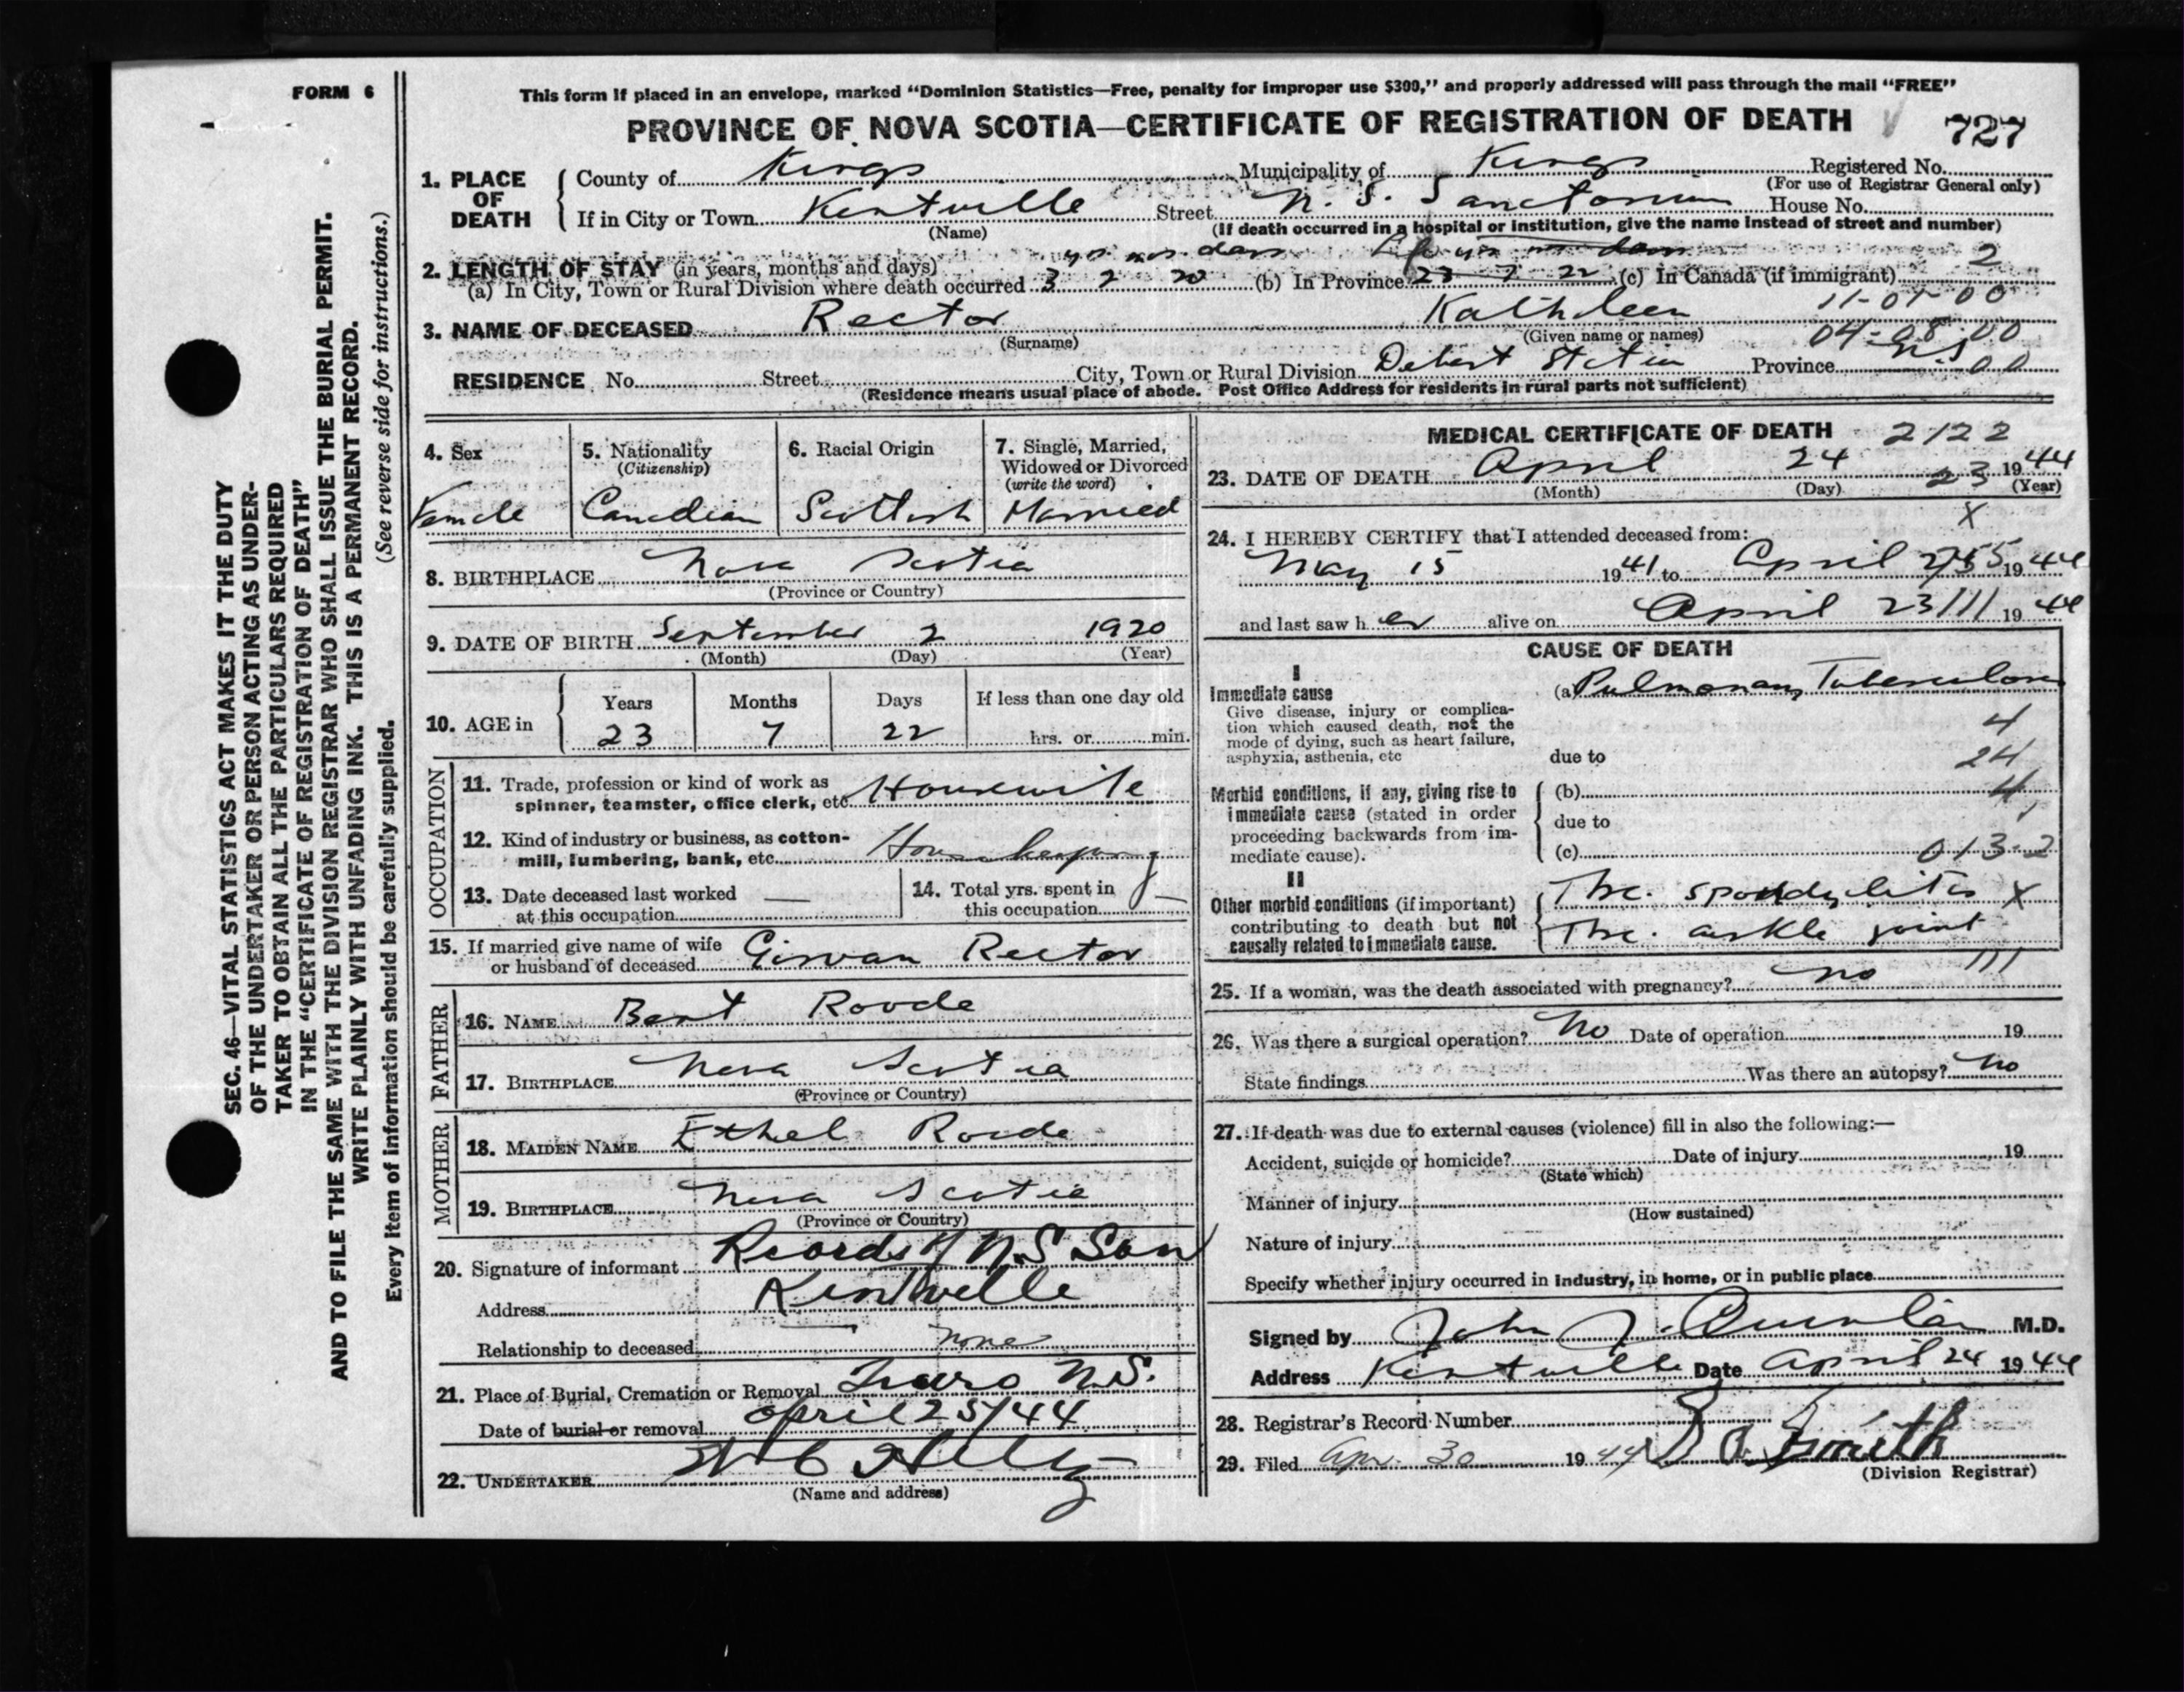 FORM 6
This form if placed in an envelope, marked "Dominion Statistics—Free, penalty for improper use $300," and properly addressed will pass through the mail "FREE"
PROVINCE OF NOVA SCOTIA—CERTIFICATE OF REGISTRATION OF DEATH 727
SEC. 46—VITAL STATISTICS ACT MAKES IT THE DUTY
OF THE UNDERTAKER OR PERSON ACTING AS UNDER-
TAKER TO OBTAIN ALL THE PARTICULARS REQUIRED
IN THE "CERTIFICATE OF REGISTRATION OF DEATH"
AND TO FILE THE SAME WITH THE DIVISION REGISTRAR WHO SHALL ISSUE THE BURIAL PERMIT.
WRITE PLAINLY WITH UNFADING INK. THIS IS A PERMANENT RECORD.
Every item of information should be carefully supplied. (See reverse side for instructions.)
1. PLACE OF DEATH
County of Kings Municipality of Kings Registered No.
(For use of Registrar General only)
If in City or Town Kentville Street N. S. Sanatorium House No.
(Name) (If death occurred in a hospital or institution, give the name instead of street and number)
2. LENGTH OF STAY (in years, months and days) yrs mos days Life yrs m days 2
(a) In City, Town or Rural Division where death occurred 3 2 20 (b) In Province 23 7 22 (c) In Canada (if immigrant)
11-01-00
3. NAME OF DECEASED Rector Kathleen
(Surname) (Given name or names) 04-08-00
RESIDENCE No. Street City, Town or Rural Division Debert Station Province N.S. 00
(Residence means usual place of abode. Post Office Address for residents in rural parts not sufficient)
4. Sex 5. Nationality (Citizenship) 6. Racial Origin 7. Single, Married, Widowed or Divorced (write the word)
Female Canadian Scottish Married
8. BIRTHPLACE Nova Scotia
(Province or Country)
9. DATE OF BIRTH September 2 1920
(Month) (Day) (Year)
10. AGE in Years Months Days If less than one day old
23 7 22 hrs. or min.
OCCUPATION
11. Trade, profession or kind of work as
spinner, teamster, office clerk, etc. Housewife
12. Kind of industry or business, as cotton-
mill, lumbering, bank, etc. Housekeeping
13. Date deceased last worked — 14. Total yrs. spent in
at this occupation this occupation —
15. If married give name of wife
or husband of deceased Girvan Rector
FATHER
16. NAME Bert Roode
17. BIRTHPLACE Nova Scotia
(Province or Country)
MOTHER
18. MAIDEN NAME Ethel Roode
19. BIRTHPLACE Nova Scotia
(Province or Country)
20. Signature of informant Records of N.S San
Address Kentville
Relationship to deceased none
21. Place of Burial, Cremation or Removal Truro N.S.
Date of burial or removal April 25/44
22. UNDERTAKER
(Name and address)
MEDICAL CERTIFICATE OF DEATH 2122
23. DATE OF DEATH April 24 23 1944
(Month) (Day) (Year)
X
24. I HEREBY CERTIFY that I attended deceased from:
May 15 1941 to April 1944
and last saw her alive on April 23 111 1944
CAUSE OF DEATH
I
Immediate cause (a) Pulmonary Tuberculosis
Give disease, injury or complica-
tion which caused death, not the 4
mode of dying, such as heart failure,
asphyxia, asthenia, etc due to 24
Morbid conditions, if any, giving rise to (b) 4
immediate cause (stated in order due to
proceeding backwards from im-
mediate cause). (c) 013-2
II
Other morbid conditions (if important) Tbc. spondylitis X
contributing to death but not
causally related to immediate cause. Tbc. ankle joint
111
25. If a woman, was the death associated with pregnancy? no
26. Was there a surgical operation? No Date of operation 19
State findings Was there an autopsy? No
27. If death was due to external causes (violence) fill in also the following:—
Accident, suicide or homicide? Date of injury 19
(State which)
Manner of injury
(How sustained)
Nature of injury
Specify whether injury occurred in industry, in home, or in public place
Signed by John J. Quinlan M.D.
Address Kentville Date April 24 1944
28. Registrar's Record Number
29. Filed Apr. 30 1944 Smith
(Division Registrar)